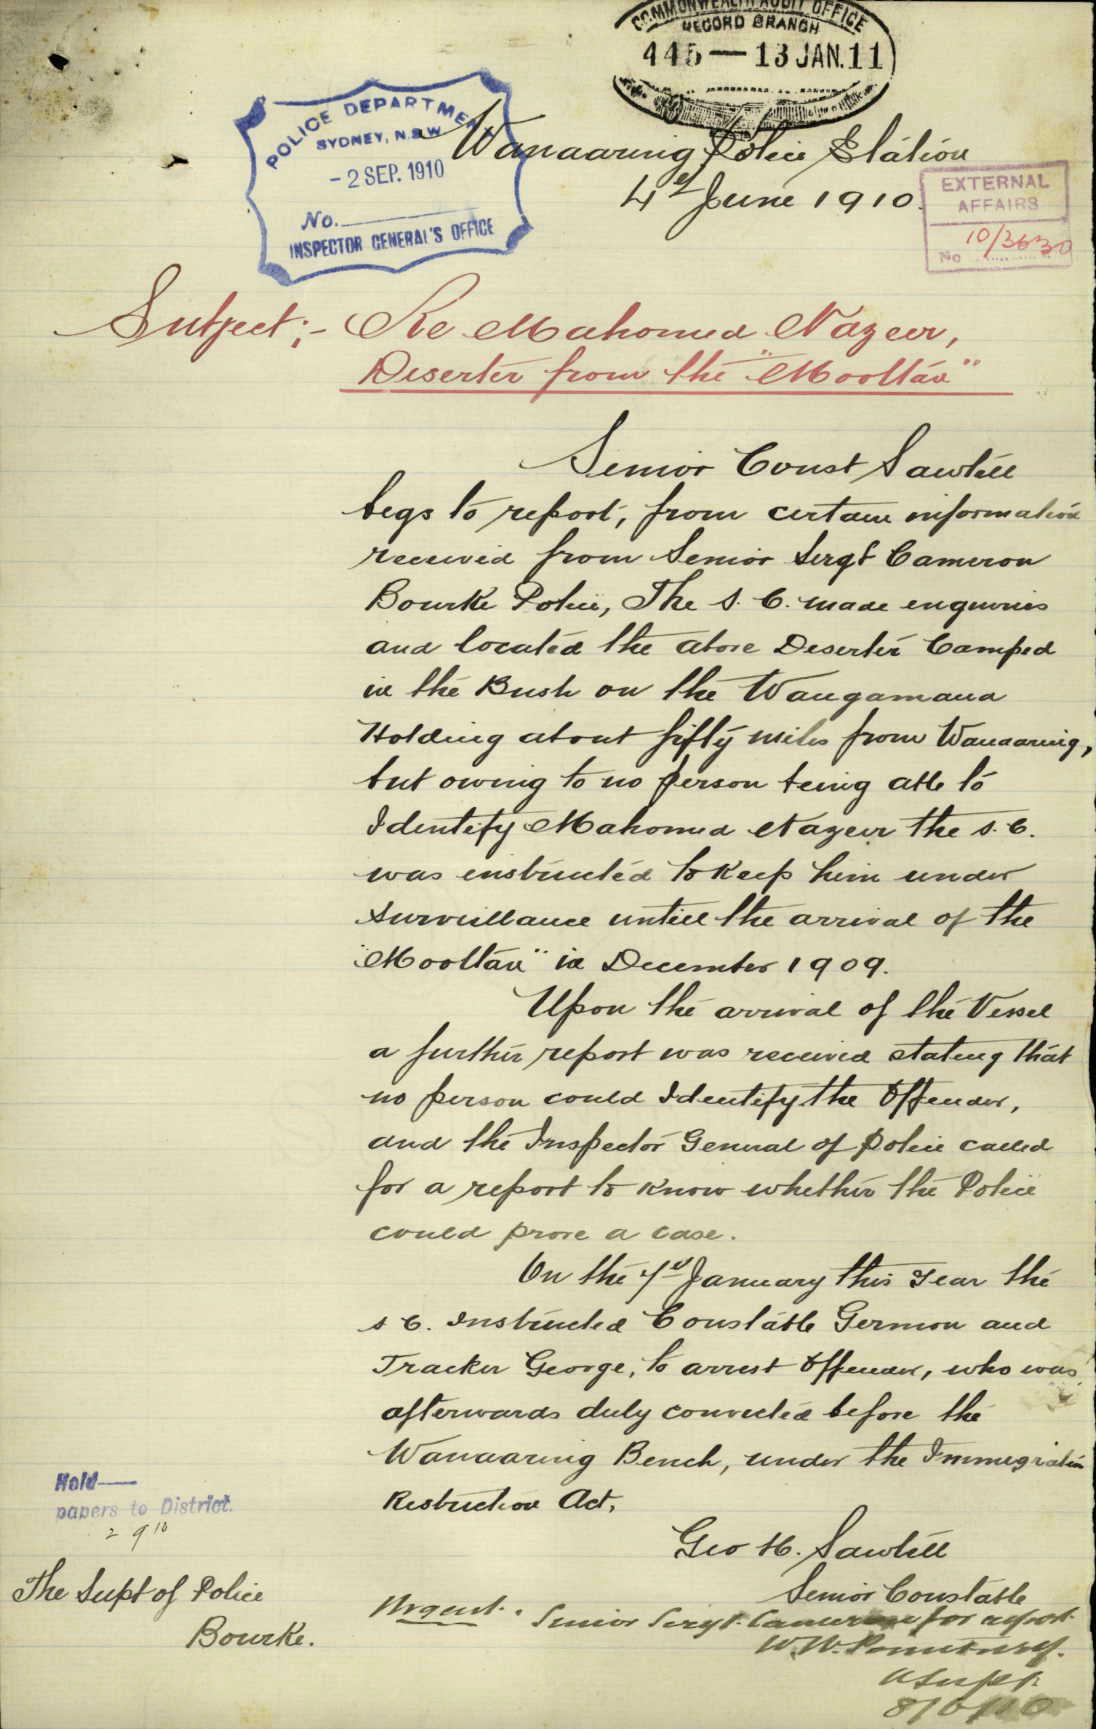 COMMONWEALTH AUDIT OFFICE
RECORD BRANCH
445 — 13 JAN. 11
POLICE DEPARTMENT
SYDNEY, N.S.W
- 2 SEP. 1910
No.
INSPECTOR GENERAL'S OFFICE
Wanaaring Police Station
4th June 1910.
EXTERNAL
AFFAIRS
No 10/3630
Subject;- Re Mahomed Nazeer,
Deserter from the "Mooltan"
Senior Const Sawtell
begs to report, from certain information
received from Senior Sergt Cameron
Bourke Police, The S. C. made enquiries
and located the above Deserter Camped
in the Bush on the Waugamana
Holding about fifty miles from Wanaaring,
but owing to no person being able to
Identify Mahomed Nazeer the S. C.
was instructed to Keep him under
Surveillance untill the arrival of the
"Mooltan" in December 1909.
Upon the arrival of the Vessel
a further report was received stating that
no person could Identify the Offender,
and the Inspector General of Police called
for a report to know whether the Police
could prove a case.
On the January this Year the
S C. Instructed Constable Germon and
Tracker George, to arrest Offender, who was
afterwards duly convicted before the
Wanaaring Bench, under the Immigration
Restriction Act,
Geo H. Sawtell
Senior Constable
Hold—
papers to District.
2 9 10
The Supt of Police
Bourke.
Urgent. Senior Sergt. Cameron for report.
W. W.